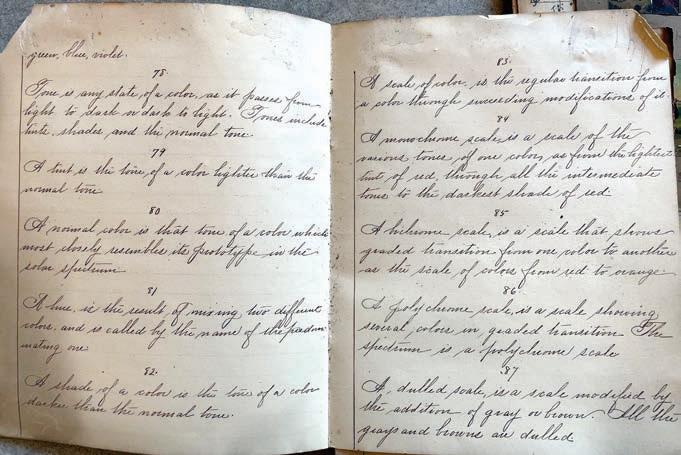 green, blue, violet.
78
Tone is any state, of a color, as it passes from
light to dark or dark to light. Tones include
tints, shades, and the normal tone.
79
A tint is the tone, of a color lighter than the
normal tone.
80
A normal color is that tone of a color which
most closely resembles its prototype in the
solar spectrum
81
A hue, is the result, of mixing two different
colors, and is called by the name of the predom-
inating one.
82.
A shade of a color is the tone of a color
darker than the normal tone.
83.
A scale of color, is the regular transition from
a color through succeeding modifications of it.
84
A monochrome scale, is a scale of the
various tones of one color, as from the lightest
tint of red, through all the intermediate
tones to the darkest shade of red
85
A bichrome scale, is a scale that shows
graded transition from one color to another
as the scale of colors from red to orange
86
A polychrome scale, is a scale showing
several colors in graded transition The
spectrum is a polychrome scale
87
A dulled scale, is a scale modified by
the addition of gray or brown. All the
grays and browns are dulled